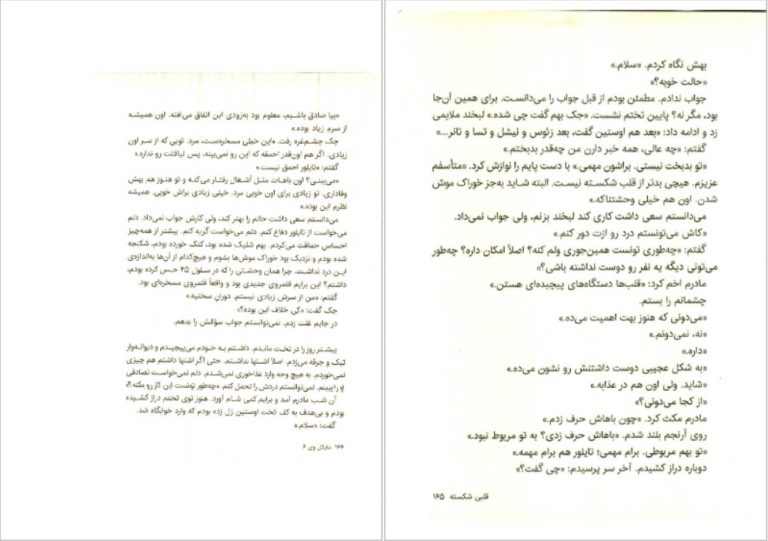 «بیا صادق باشیم، معلوم بود به‌زودی این اتفاق می‌افته. اون همیشه
از سرم زیاد بوده.»
جک چشم‌غره رفت. «این خیلی مسخره‌ست، مرد. تویی که از سر اون
زیادی. اگر هم اون‌قدر احمقه که این رو نمی‌بینه، پس لیاقتت رو نداره.»
گفتم: «تایلور احمق نیست.»
«می‌بینی؟ اون باهات مثل آشغال رفتار می‌کنه و تو هنوز هم بهش
وفاداری. تو زیادی برای اون خوبی مرد. خیلی زیادی براش خوبی. همیشه
نظرم این بوده.»
می‌دانستم سعی داشت حالم را بهتر کند، ولی کارش جواب نمی‌داد. دلم
می‌خواست از تایلور دفاع کنم. دلم می‌خواست گریه کنم. بیشتر از همه‌چیز
احساس حماقت می‌کردم. بهم شلیک شده بود، کتک خورده بودم، شکنجه
شده بودم و نزدیک بود خوراک موش‌ها بشوم و هیچ‌کدام از آن‌ها به‌اندازه‌ی
این درد نداشت. چرا همان وحشتی را که در سلول ۲۵ حس کرده بودم،
داشتم؟ این برایم قلمروی جدیدی بود و واقعاً قلمروی مسخره‌ای بود.
گفتم: «من از سرش زیادی نیستم. دوران سختیه.»
جک گفت: «کی خلاف این بوده؟»
در جایم غلت زدم. نمی‌توانستم جواب سؤالش را بدهم.
بیشتر روز را در تخت ماندم. داشتم به خودم می‌پیچیدم و دیوانه‌وار
تیک و جرقه می‌زدم. اصلاً اشتها نداشتم. حتی اگر اشتها داشتم هم چیزی
نمی‌خوردم. به هیچ وجه وارد غذاخوری نمی‌شدم. دلم نمی‌خواست تصادفی
او را ببینم. نمی‌توانستم دردش را تحمل کنم. «چه‌طور تونست این کار رو بکنه؟»
آن شب مادرم آمد و برایم کمی شام آورد. هنوز توی تختم دراز کشیده
بودم و بی‌هدف به کف تخت اوستین زل زده بودم که وارد خوابگاه شد.
گفت: «سلام.»
۱۶۴ مایکل وی ۶
بهش نگاه کردم. «سلام.»
«حالت خوبه؟»
جواب ندادم. مطمئن بودم از قبل جواب را می‌دانست. برای همین آن‌جا
بود، مگر نه؟ پایین تختم نشست. «جک بهم گفت چی شده.» لبخند ملایمی
زد و ادامه داد: «بعد هم اوستین گفت، بعد زئوس و نیشل و تسا و تانر...»
گفتم: «چه عالی، همه خبر دارن من چه‌قدر بدبختم.»
«تو بدبخت نیستی. براشون مهمی.» با دست پایم را نوازش کرد. «متأسفم
عزیزم. هیچی بدتر از قلب شکسته نیست. البته شاید به‌جز خوراک موش
شدن. اون هم خیلی وحشتناکه.»
می‌دانستم سعی داشت کاری کند لبخند بزنم، ولی جواب نمی‌داد.
«کاش می‌تونستم درد رو ازت دور کنم.»
گفتم: «چه‌طوری تونست همین‌جوری ولم کنه؟ اصلاً امکان داره؟ چه‌طور
می‌تونی دیگه یه نفر رو دوست نداشته باشی؟»
مادرم اخم کرد: «قلب‌ها دستگاه‌های پیچیده‌ای هستن.»
چشمانم را بستم.
«می‌دونی که هنوز بهت اهمیت می‌ده.»
«نه، نمی‌دونم.»
«داره.»
«به شکل عجیبی دوست داشتنش رو نشون می‌ده.»
«شاید. ولی اون هم در عذابه.»
«از کجا می‌دونی؟»
مادرم مکث کرد. «چون باهاش حرف زدم.»
روی آرنجم بلند شدم. «باهاش حرف زدی؟ به تو مربوط نبود.»
«تو بهم مربوطی. برام مهمی؛ تایلور هم برام مهمه.»
دوباره دراز کشیدم. آخر سر پرسیدم: «چی گفت؟»
قلبی شکسته ۱۶۵